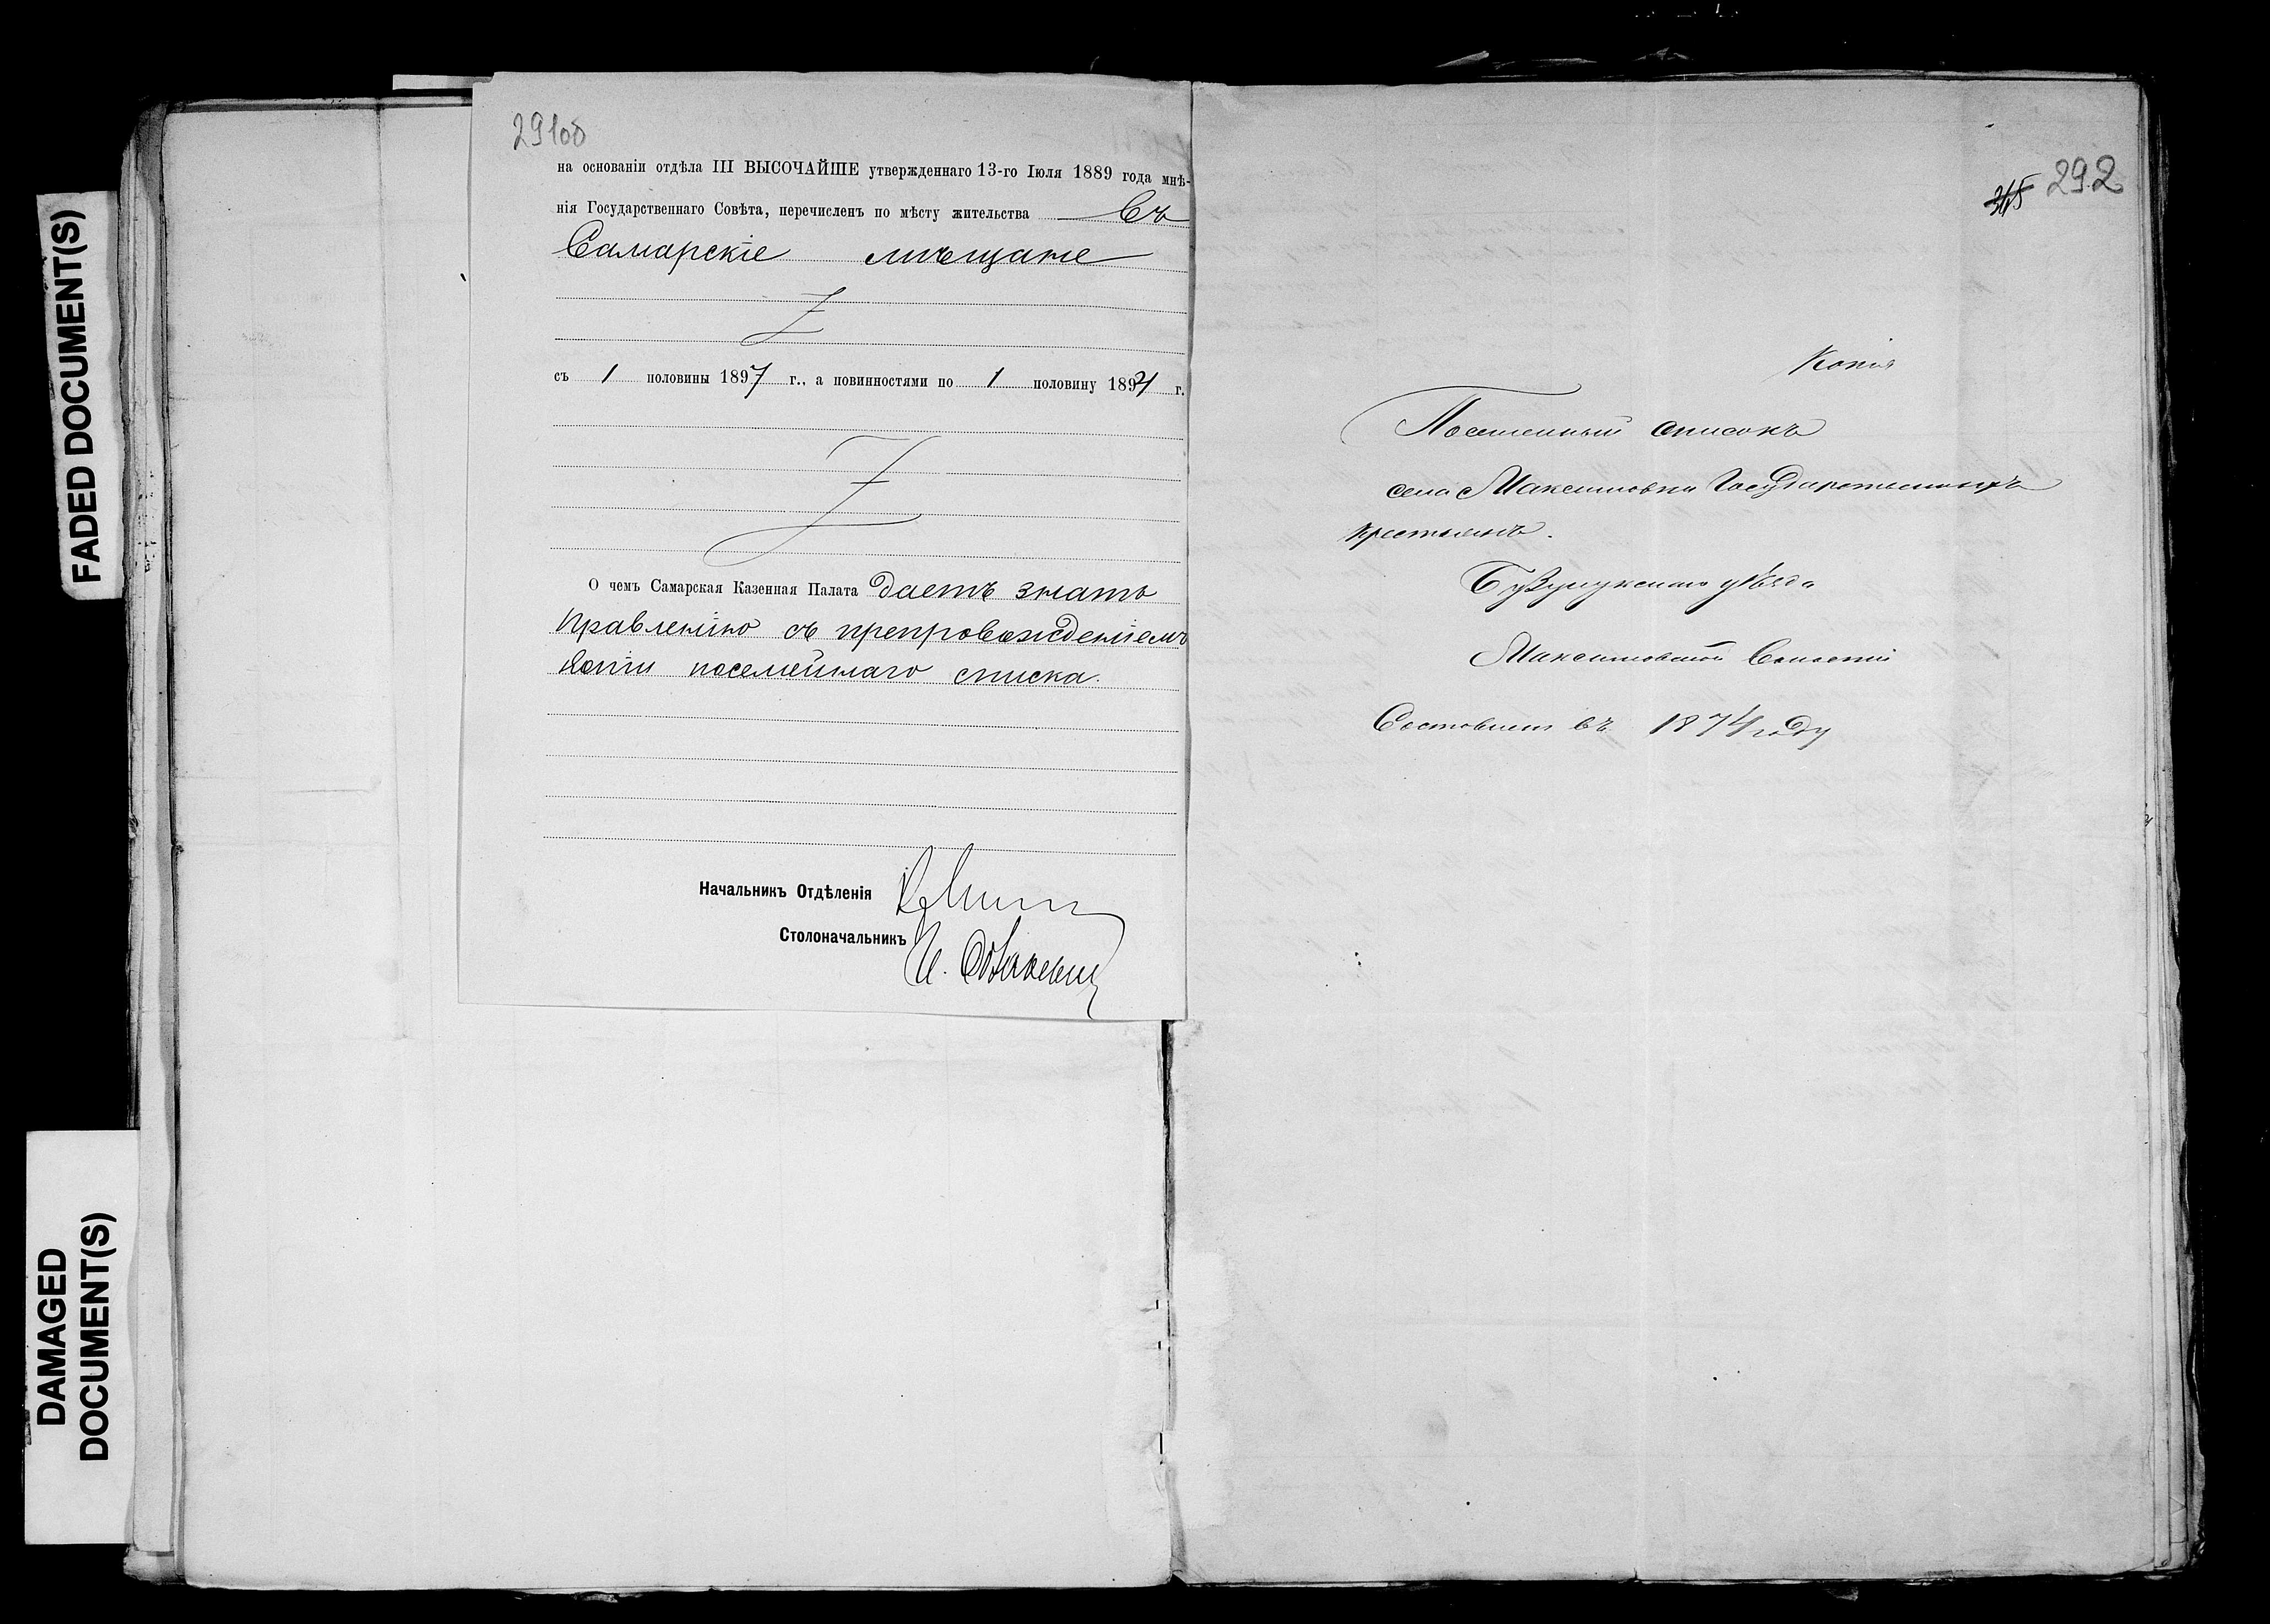 FADED DOCUMENT(S)
DAMAGED
DOCUMENT(S)
291об
на основаніи отдѣла III ВЫСОЧАЙШЕ утвержденнаго 13-го Іюля 1889 года мнѣ-
нія Государственнаго Совѣта, перечисленъ по мѣсту жительства въ
Самарскіе мѣщане
съ 1 половины 1897 г., а повинностями по 1 половину 1897 г.
О чемъ Самарская Казенная Палата даетъ знать
Правленію съ препровожденіемъ
копіи посемейнаго списка.
Начальникъ Отдѣленія
Столоначальникъ
292
315
Копія
Посемейный списокъ
села Максимовки Государственныхъ
крестьянъ.
Бузулукскаго уѣзда
Максимовской Волости
Составленъ въ 1874 году